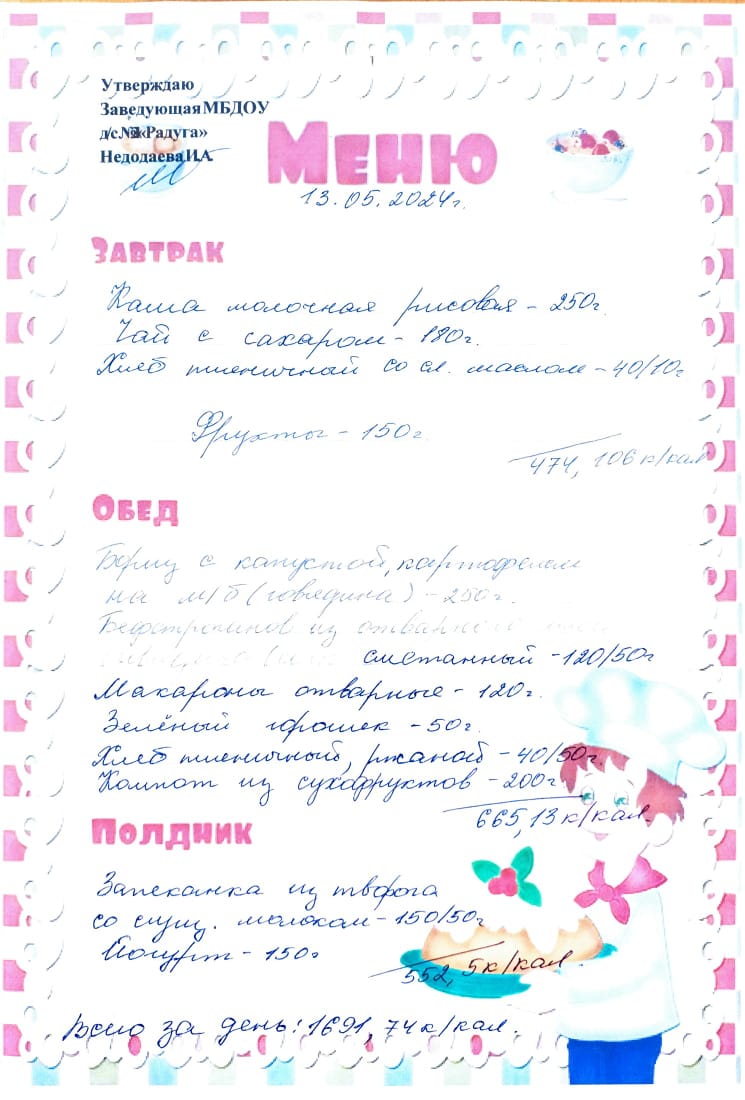 Утверждаю
Заведующая МБДОУ
д/с «Радуга»
Недодаева И.А.
Меню
13.05.2024г.
Завтрак
Каша молочная рисовая - 250г.
Чай с сахаром - 180г.
Хлеб пшеничный со сл. маслом - 40/10г
Фрукты - 150г.
474, 106 к/кал
Обед
Борщ с капустой, картофелем
на м/б (говядина) - 250г.
Бефстроганов из отварного
сметанный - 120/50г
Макароны отварные - 120г.
Зелёный горошек - 50г.
Хлеб пшеничный, ржаной - 40/50г.
Компот из сухофруктов - 200г
665,13 к/кал.
Полдник
Запеканка из творога
со сгущ. молоком - 150/50г
Йогурт - 150г
552, 5 к/кал.
Всего за день: 1691, 74 к/кал.